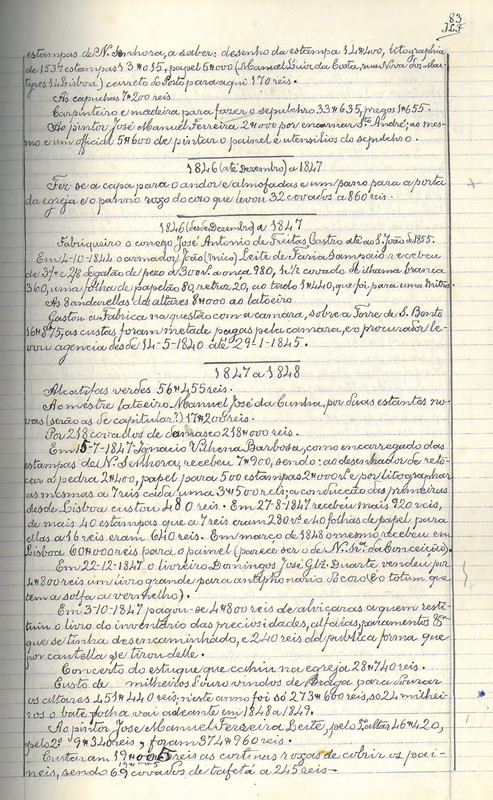 83
JLF
estampas de N. Senhora, a saber: desenho da estampa 14#400, litographia
de 1537 estampas 13#015, papel 6#000 (Manuel Luiz da Costa, rua Nova dos Mar-
tyres 14 Lisboa) carreto do Porto para aqui 170 reis.
As capuchas 7#200 reis
Carpinteiro e madeira para fazer o sepulchro 33#635, pregos 1#655.
Ao pintor José Manuel Ferreira 2#000 por encarnar Sto André; ao mes-
mo e um official 5#600 de pintar o painel e utensilios do sepulchro.
1846 (até Dezembro) a 1847
Fez-se a capa para o andor e almofadas e um panno para a porta
da egreja e o panno roxo do coro que levou 32 covados a 860 reis.
1846 (desde Dezembro) a 1847
Fabriqueiro o conego José Antonio de Freitas Castro até ao S. João de 1855.
Em 4-10-844 o armador João Leite de Faria Sampaio recebeu
de galão de pezo a onça 980, covado de lhama branca
360, uma folha de papelão 80, retroz 20, ao todo 1#440, que foi para uma mitra.
As 8 andorellas dos altares 8#000 ao latoeiro
Gastou a Fabrica na questão com a camara, sobre a Torre de S. Bento
16#875; as custas foram metade pagas pela camara, e o procurador le-
vou agencia desde 14-5-1840 até 29-1-1845.
1847 a 1848
Alcatifas verdes 56#455 reis.
Ao mestre latoeiro Manuel José da Cunha, por duas estantes no-
vas (serão as de capitular?) 17#200 reis.
Por 218 covados de damasco 218#000 reis.
Em 15-7-1847 Ignacio Vilhena Barbosa, como encarregado das
estampas de N. Senhora, recebeu 7#900, sendo: ao desenhador de reto-
car a pedra 2#400, papel para 500 estampas 2#000 e por lithographar
as mesmas a 7 reis cada uma 3#500 reis; a conducção das primeiras
desde Lisboa custou 480 reis. Em 27-8-1847 recebeu mais 920 reis,
de mais 40 estampas que a 7 reis eram 280 rs e 40 folhas de papel para
ellas a 16 reis eram 640 reis. Em março de 1848 o mesmo recebeu em
Lisboa 60#000 reis para o painel (parece ser o de N. Sra. da Conceição).
Em 22-12-1847 o livreiro Domingos José Glz Duarte vendeu por
4#800 reis um livro grande para antiphonario do coro (é o totum que
tem a solfa a vermelho).
Em 3-10-1847 pagou-se 4#800 reis de alviçaras a quem resti-
tuiu o livro do inventário das preciosidades, alfaias, paramentos &a
que se tinha desencaminhado, e 240 reis da publica forma que
por cautella se tirou delle.
Concerto do estuque que cahiu na egreja 28#740 reis.
Custo de milheiros d'ouro vindos de Braga para dourar
os altares 451#440 reis; n'este anno foi só 273#600 reis, so 24 milhei-
ros o bate folha vai adeante em 1848 a 1849.
Ao pintor José Manuel Ferreira Leite, pelo 1º altar 46#420,
pelo 2º 9#340 reis, foram 374#960 reis.
Custaram 19#005 reis as cortinas roxas de cobrir os pai-
neis, sendo 69 covados de tafetá a 245 reis